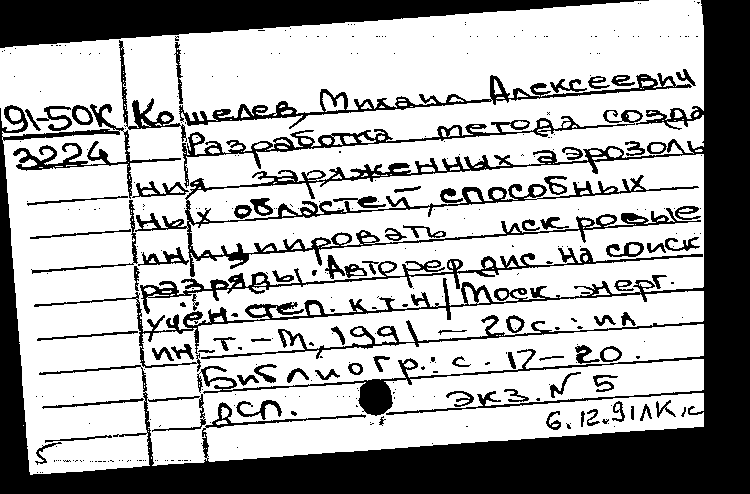 91-50К Кошелев, Михаил Алексеевич
3224 Разработка метода созда
ния заряженных аэрозоль
ных областей, способных
инициировать искровые
разряды. Автореф дис. на соиск
учён. степ. к.т.н. / Моск. энерг.
ин-т. - М., 1991 - 20с. : ил.
Библиогр.: с. 17-20.
ДСП. экз. N 5
6.12.91 ЛК
5